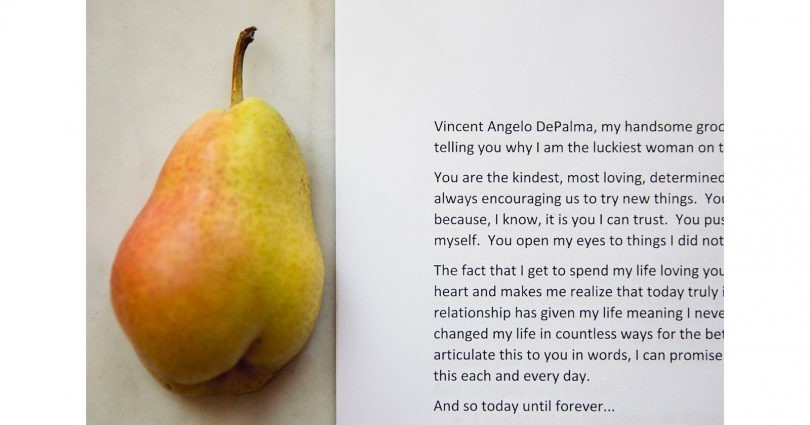 Vincent Angelo DePalma, my handsome
telling you why I am the luckiest woman on
You are the kindest, most loving, determined
always encouraging us to try new things.
because, I know, it is you I can trust. You
myself. You open my eyes to things I did not
The fact that I get to spend my life loving you
heart and makes me realize that today truly
relationship has given my life meaning I
changed my life in countless ways for the
articulate this to you in words, I can promise
this each and every day.
And so today until forever...